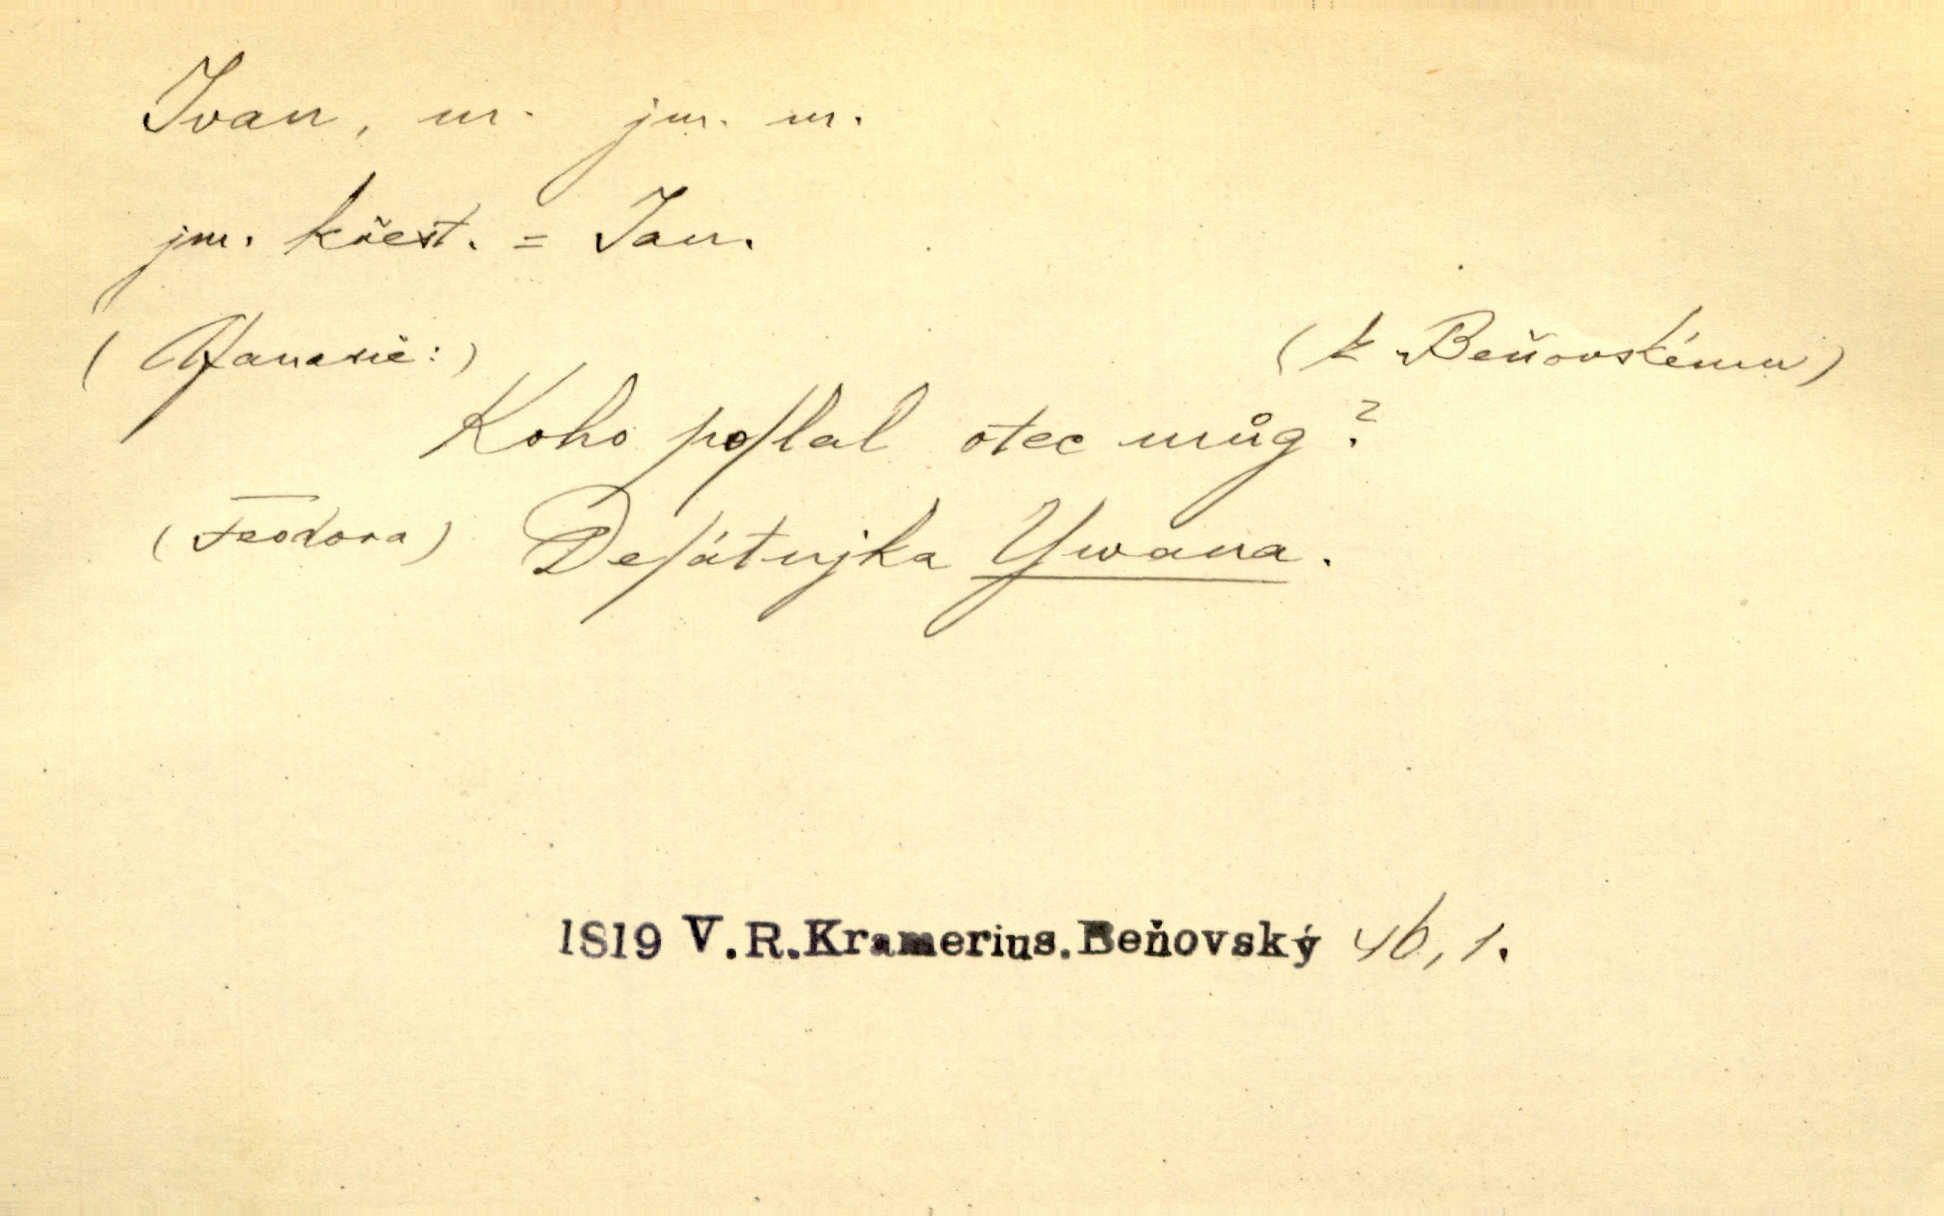 Ivan, m. jm. m.
jm. křest. = Jan.
(Afanasie:) (k Beňovskému)
Koho poſlal otec můg?
(Feodora) Deſátnjka Ywana.
1819 V.R.Kramerius.Beňovský 46,1.